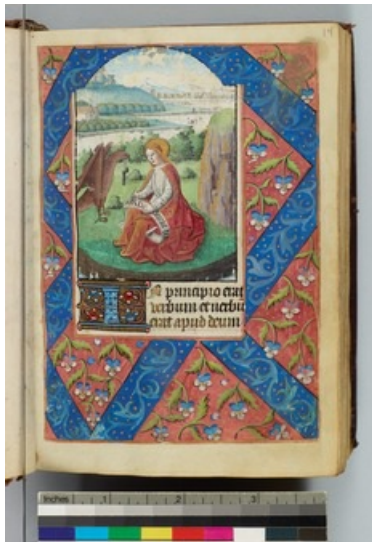 In principio erat
verbum et uerbū
erat apud deum
Inches 1 2 3